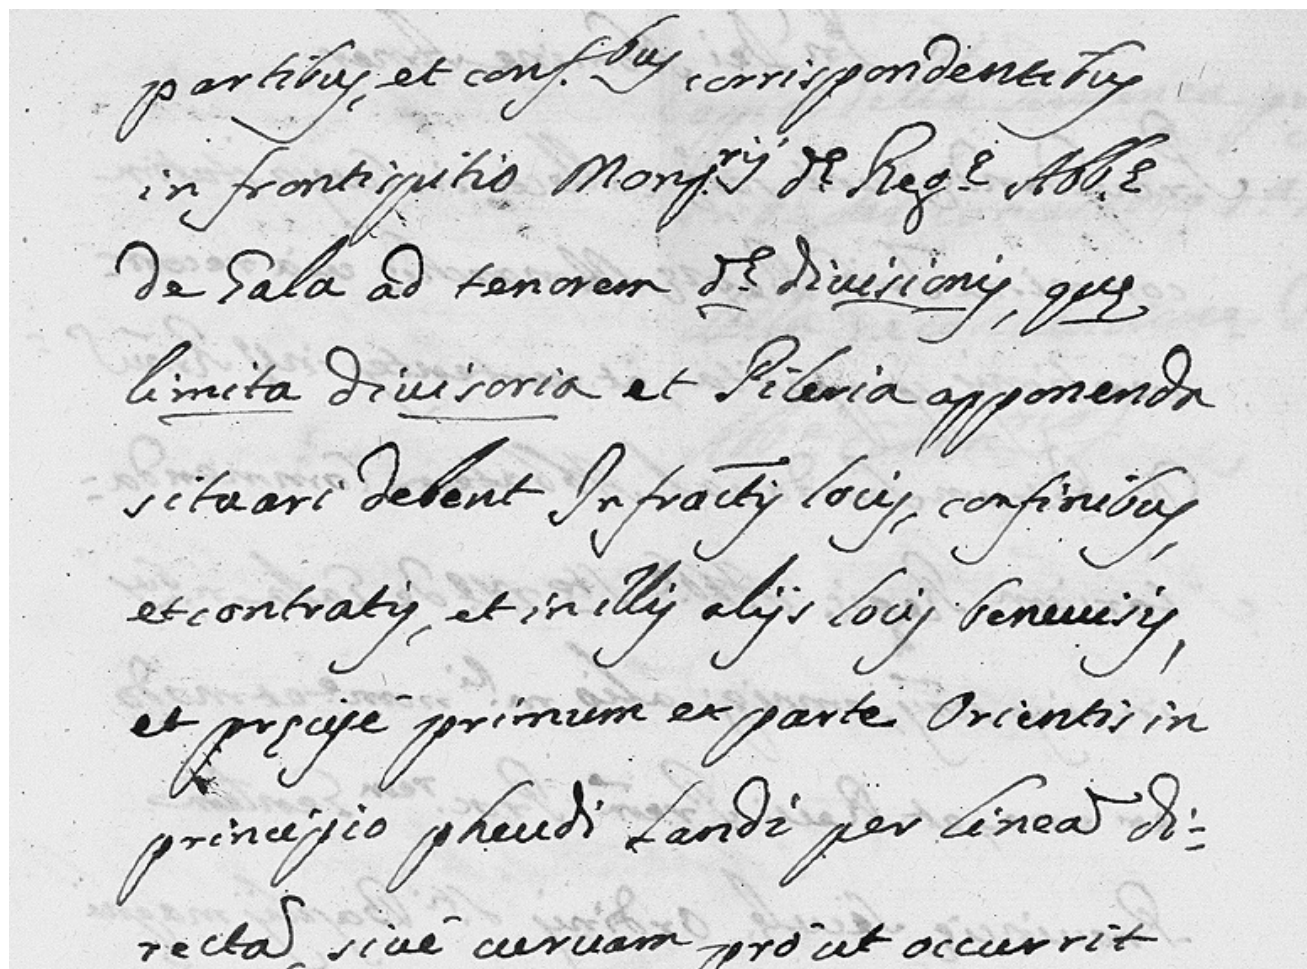 partibus, et conf.bus corrispondentibus
in frontispitio Monst.rij d.e Reg.e Abb.e
de Gala ad tenorem d.e divisionis, que
limita divisoria et Pileria apponenda
situari debent Infractis locis, confinibus,
et contratis, et in illis alijs locis benevisis,
et precisè primum ex parte Orientis in
principio pheudi Landi per linea di-
recta sivè curvam pro ut occurrit